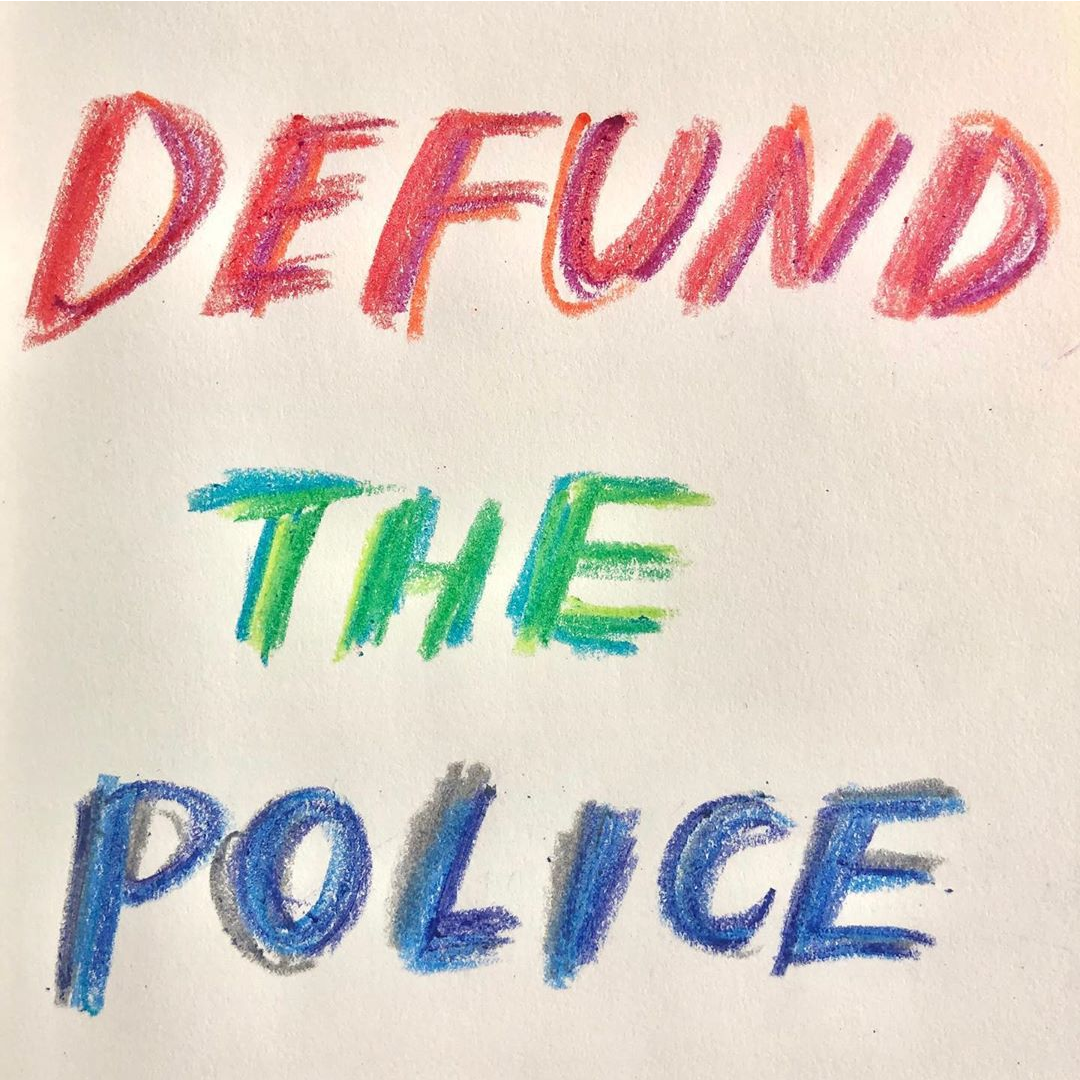 DEFUND
THE
POLICE